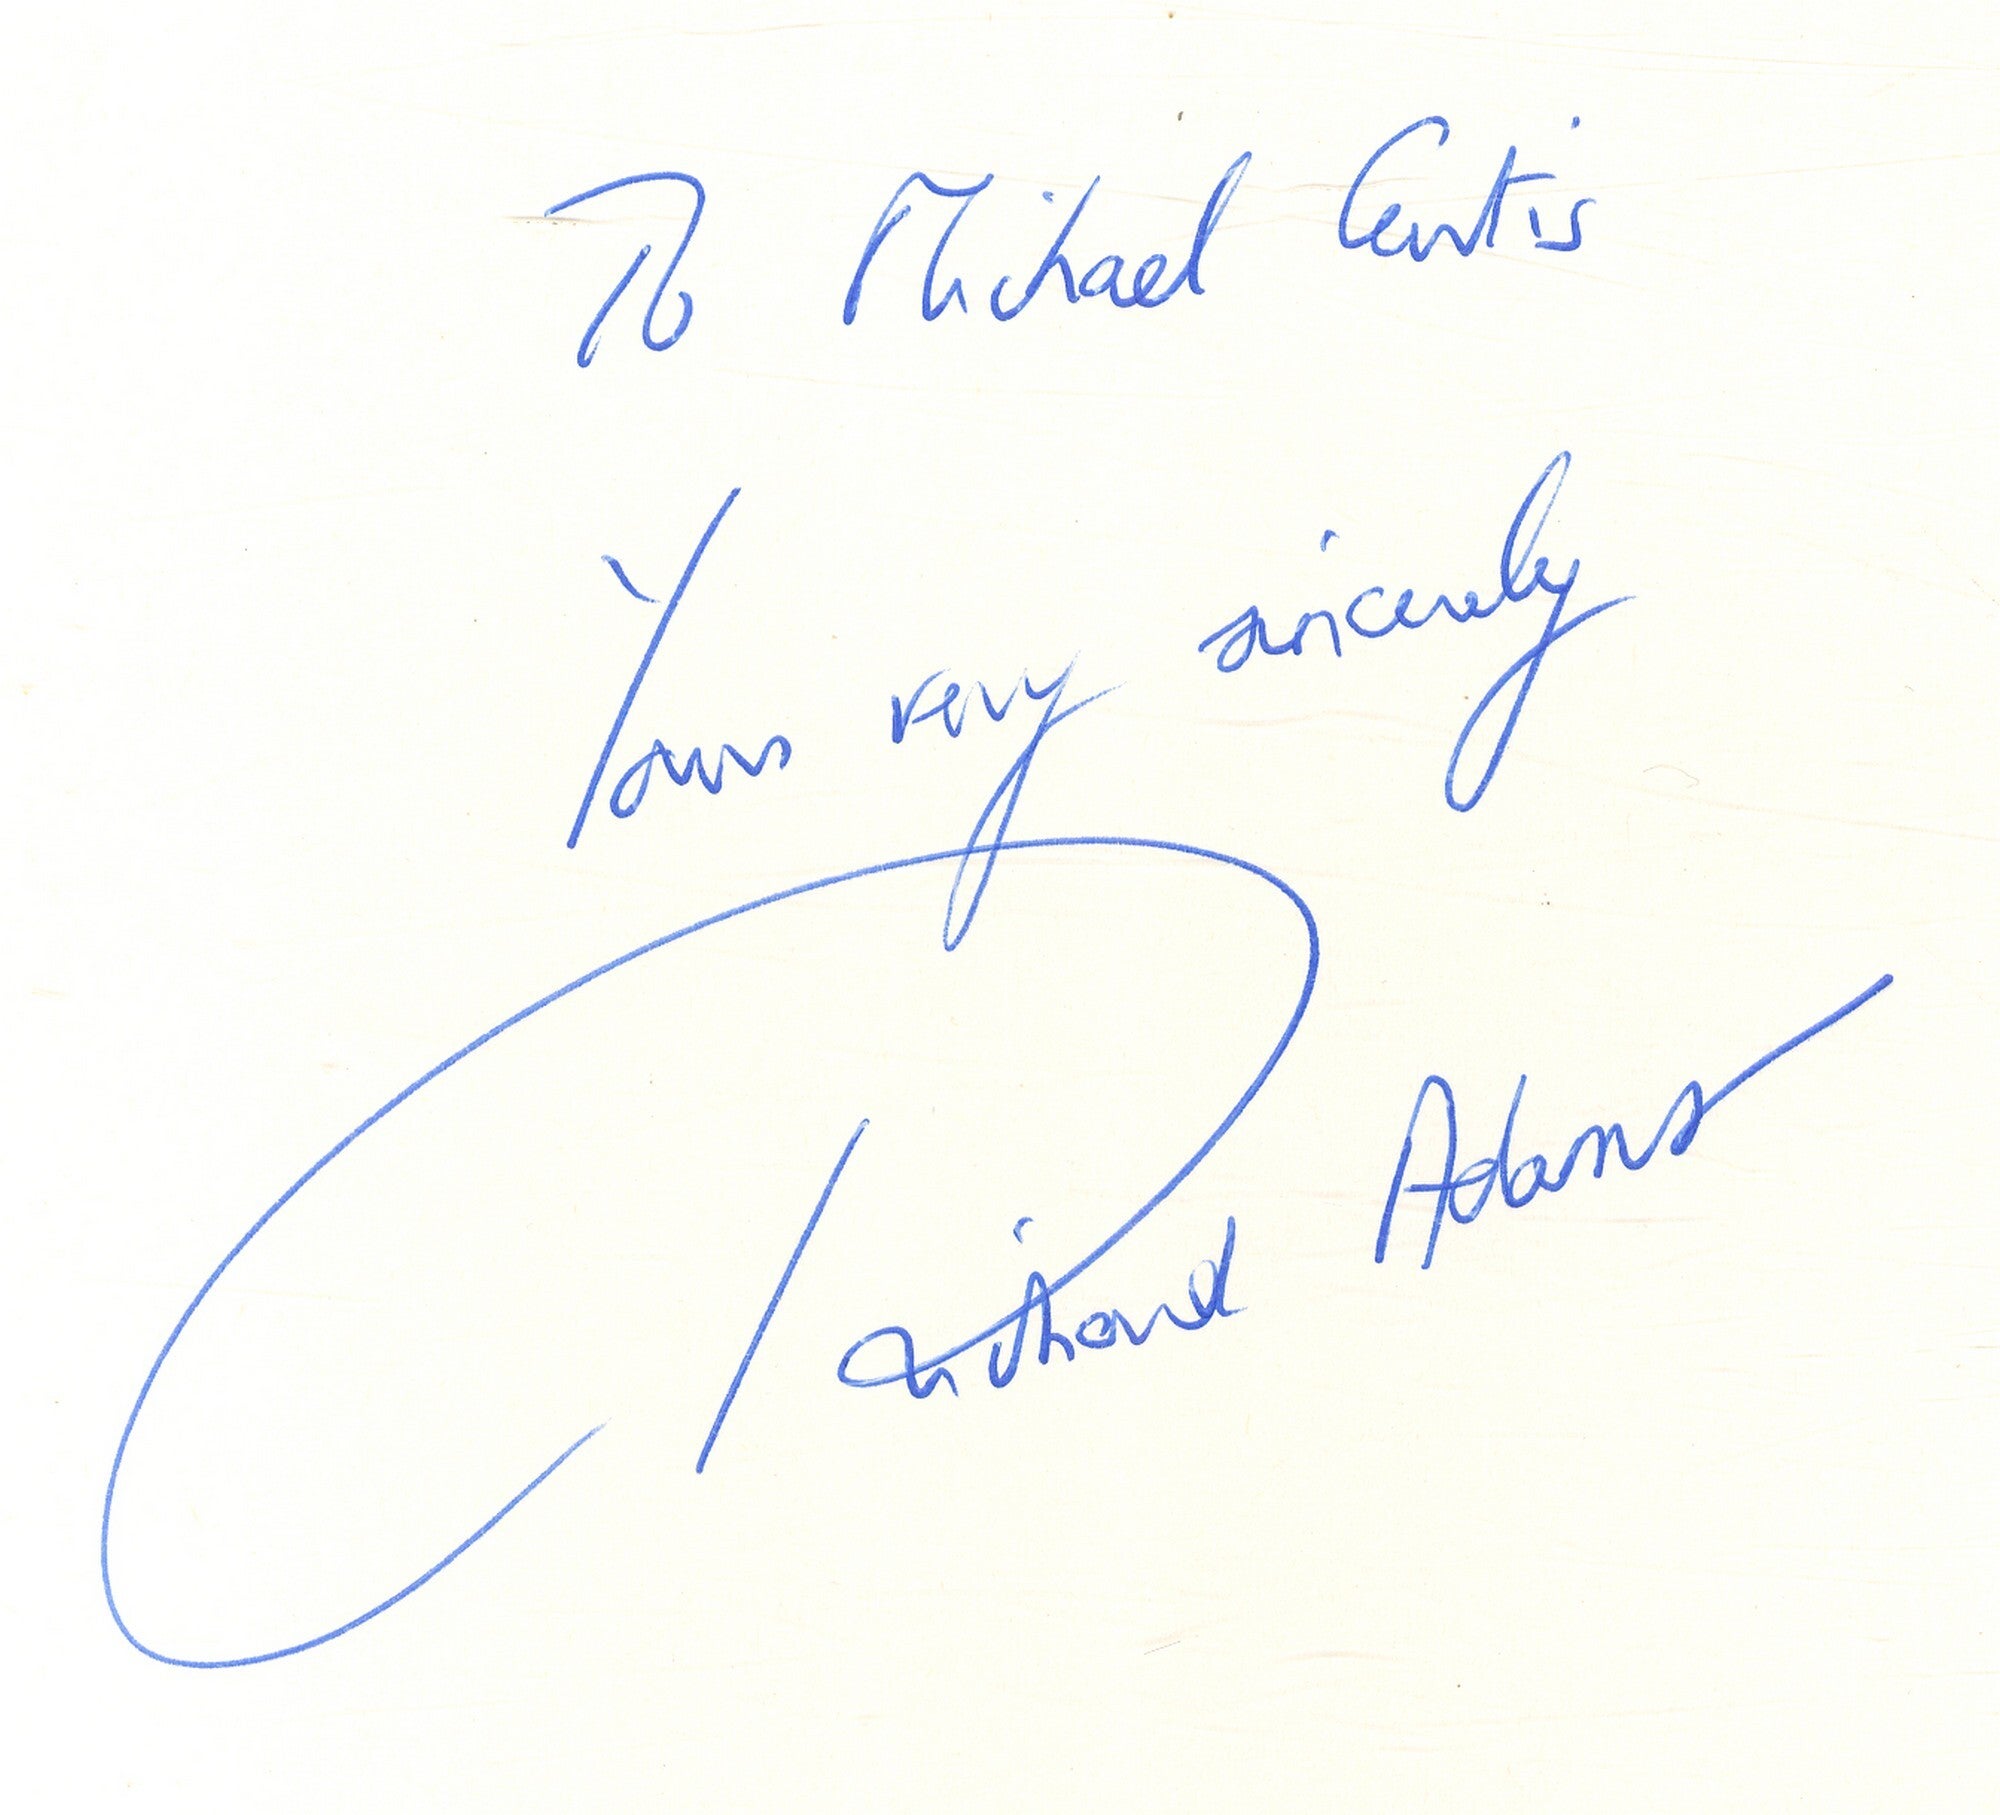 To Michael Curtis
Yours very sincerely
Richard Adams